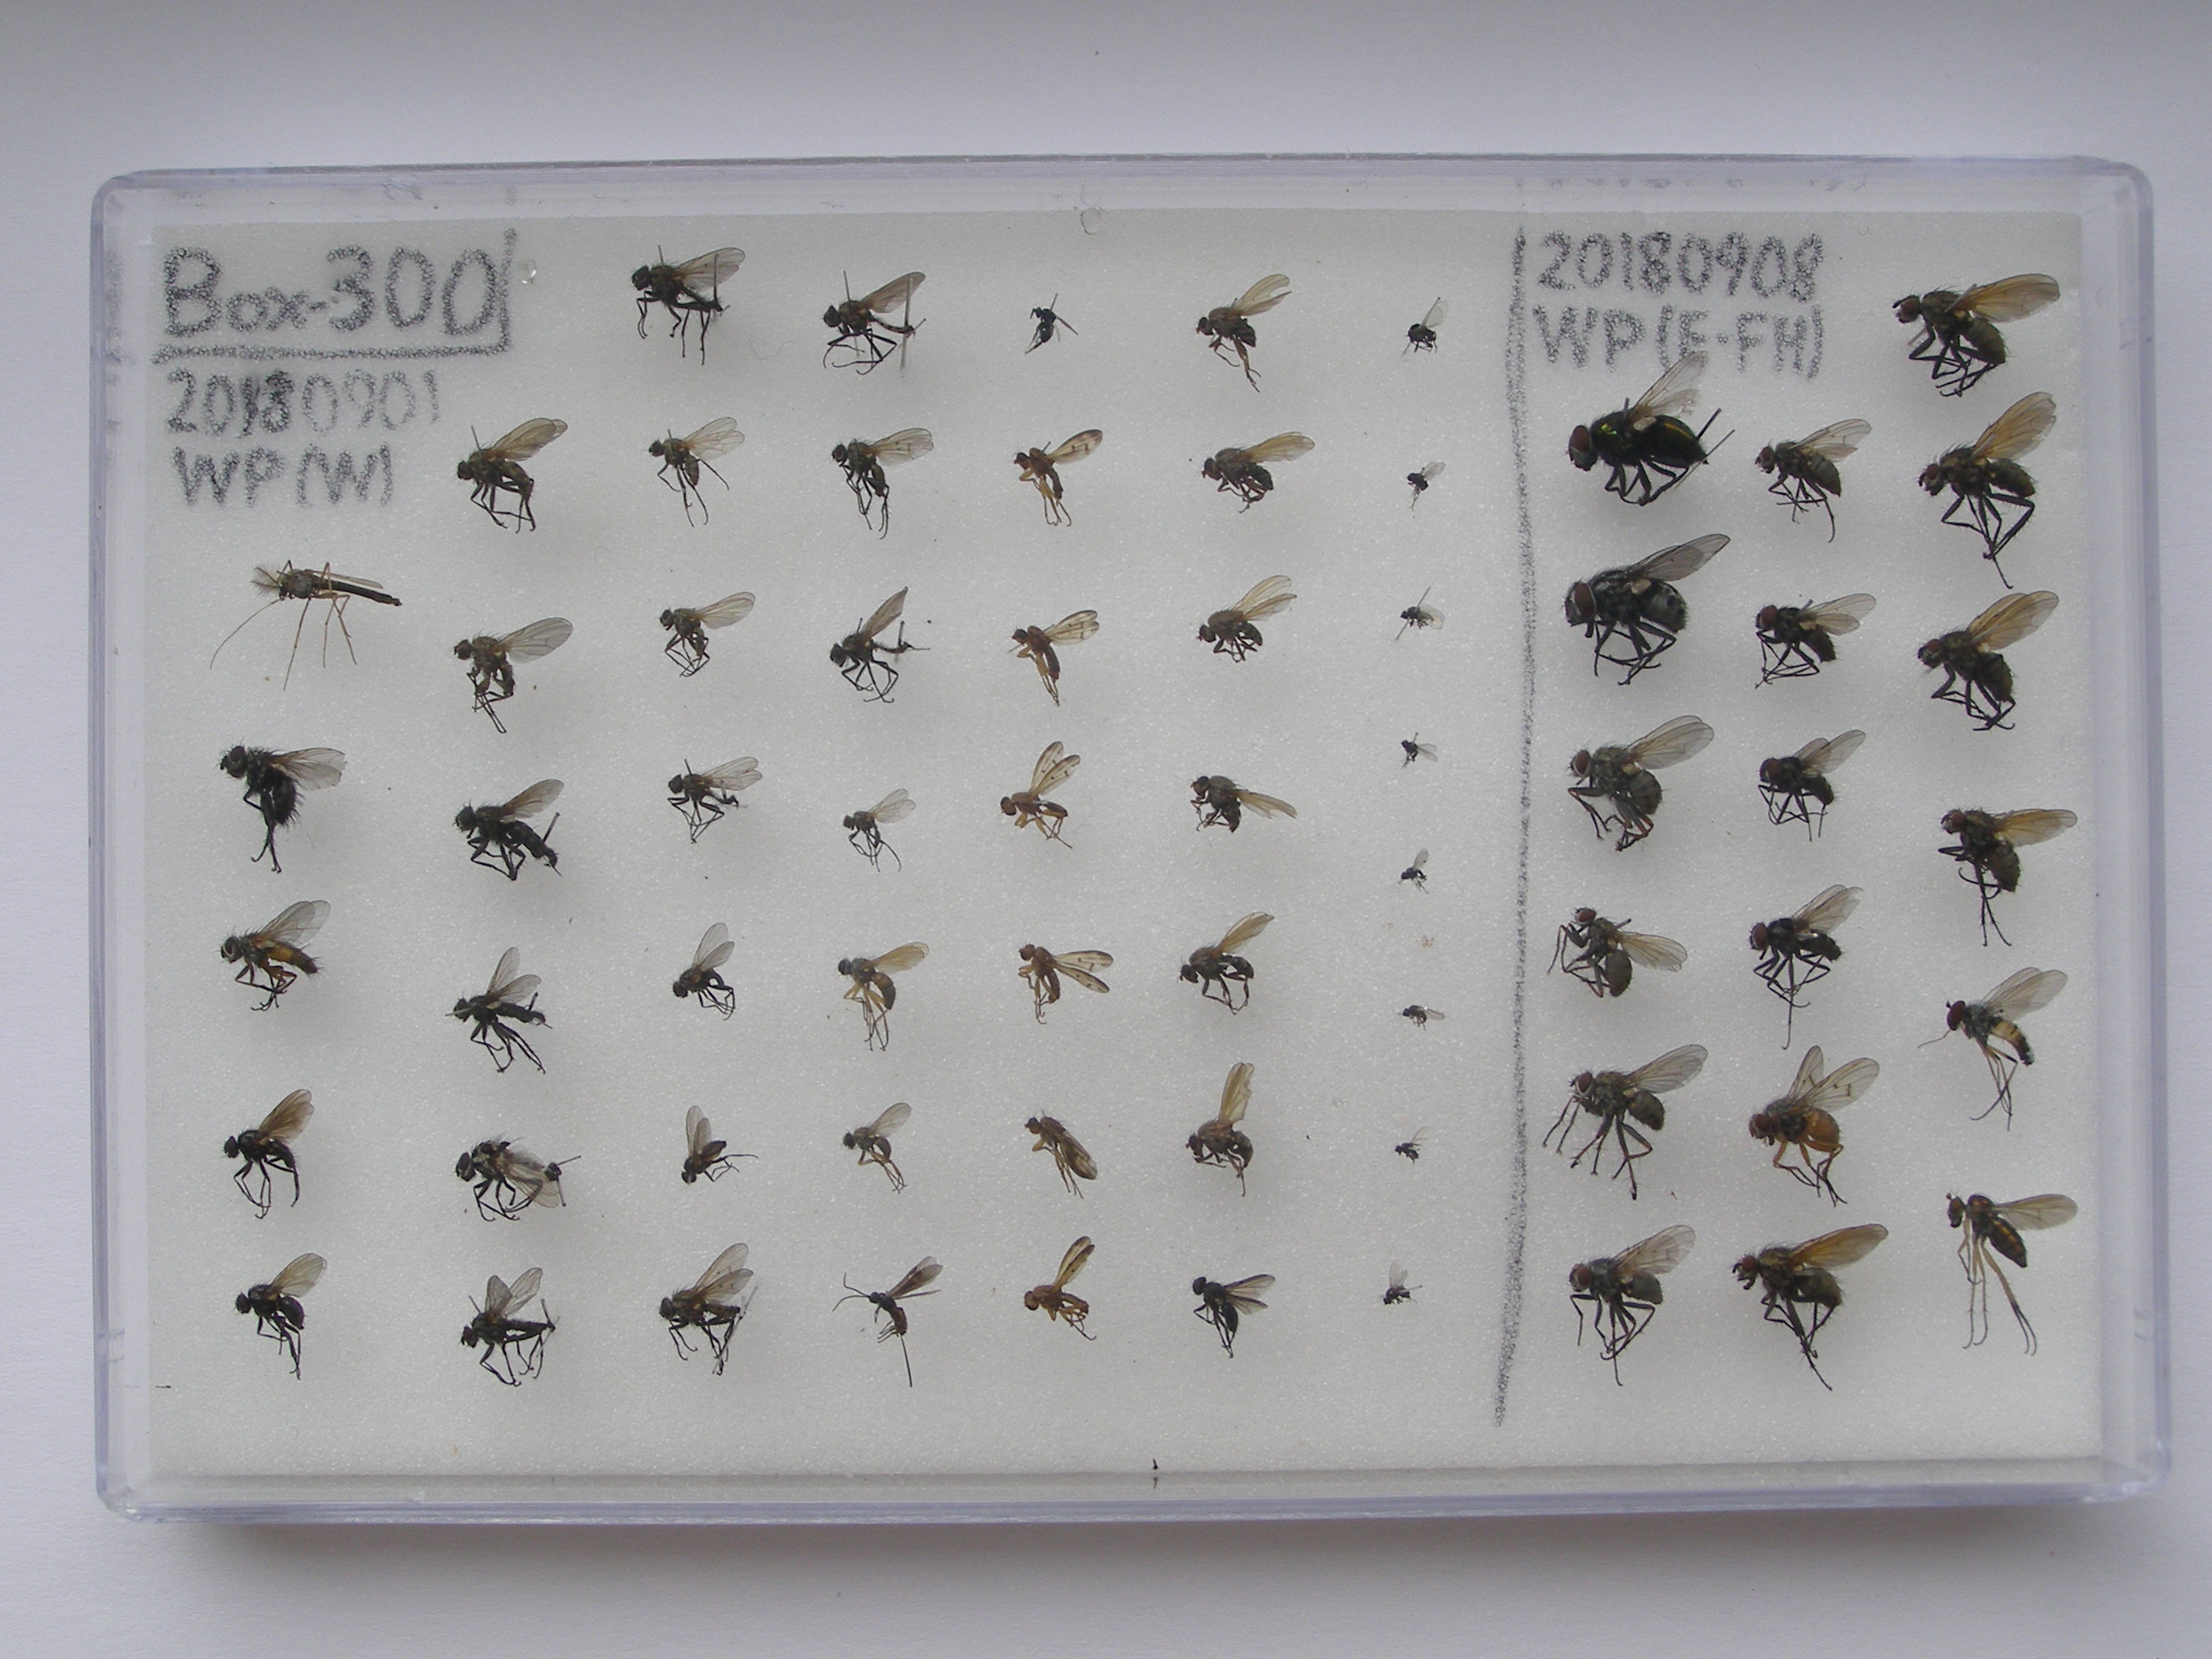 Box-300
20180901
WP (W)
20180908
WP (F-FH)